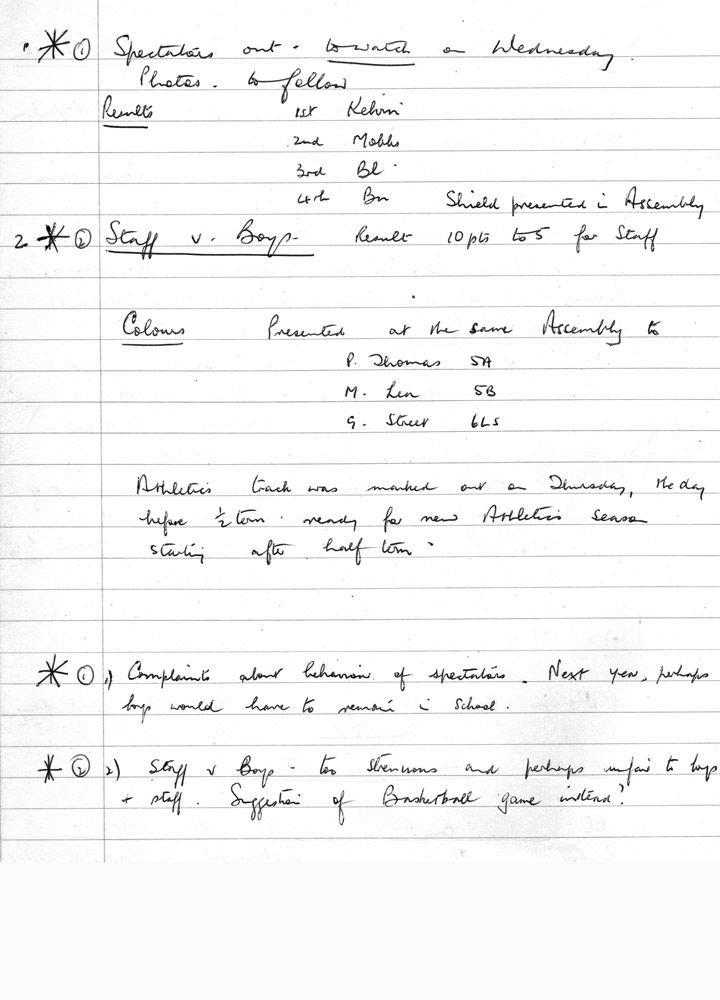 1. * ① Spectators out. to watch on Wednesday.
Photos. to follow
Results 1st Kelvin
2nd Mobbs
3rd Bl.
4th Bn Shield presented in Assembly
2 * ② Staff v. Boys- Result 10 pts to 5 for Staff
Colours Presented at the same Assembly to
P. Thomas 5A
M. Lea 5B
G. Street 6LS
Athletics track was marked out on Thursday, the day
before ½ term. ready for new Athletics season
starting after half term.
* ① 1) Complaints about behaviour of spectators. Next year, perhaps
boys would have to remain in School.
* ② 2) Staff v Boys - too strenuous and perhaps unfair to boys
+ staff. Suggestion of Basketball game instead?